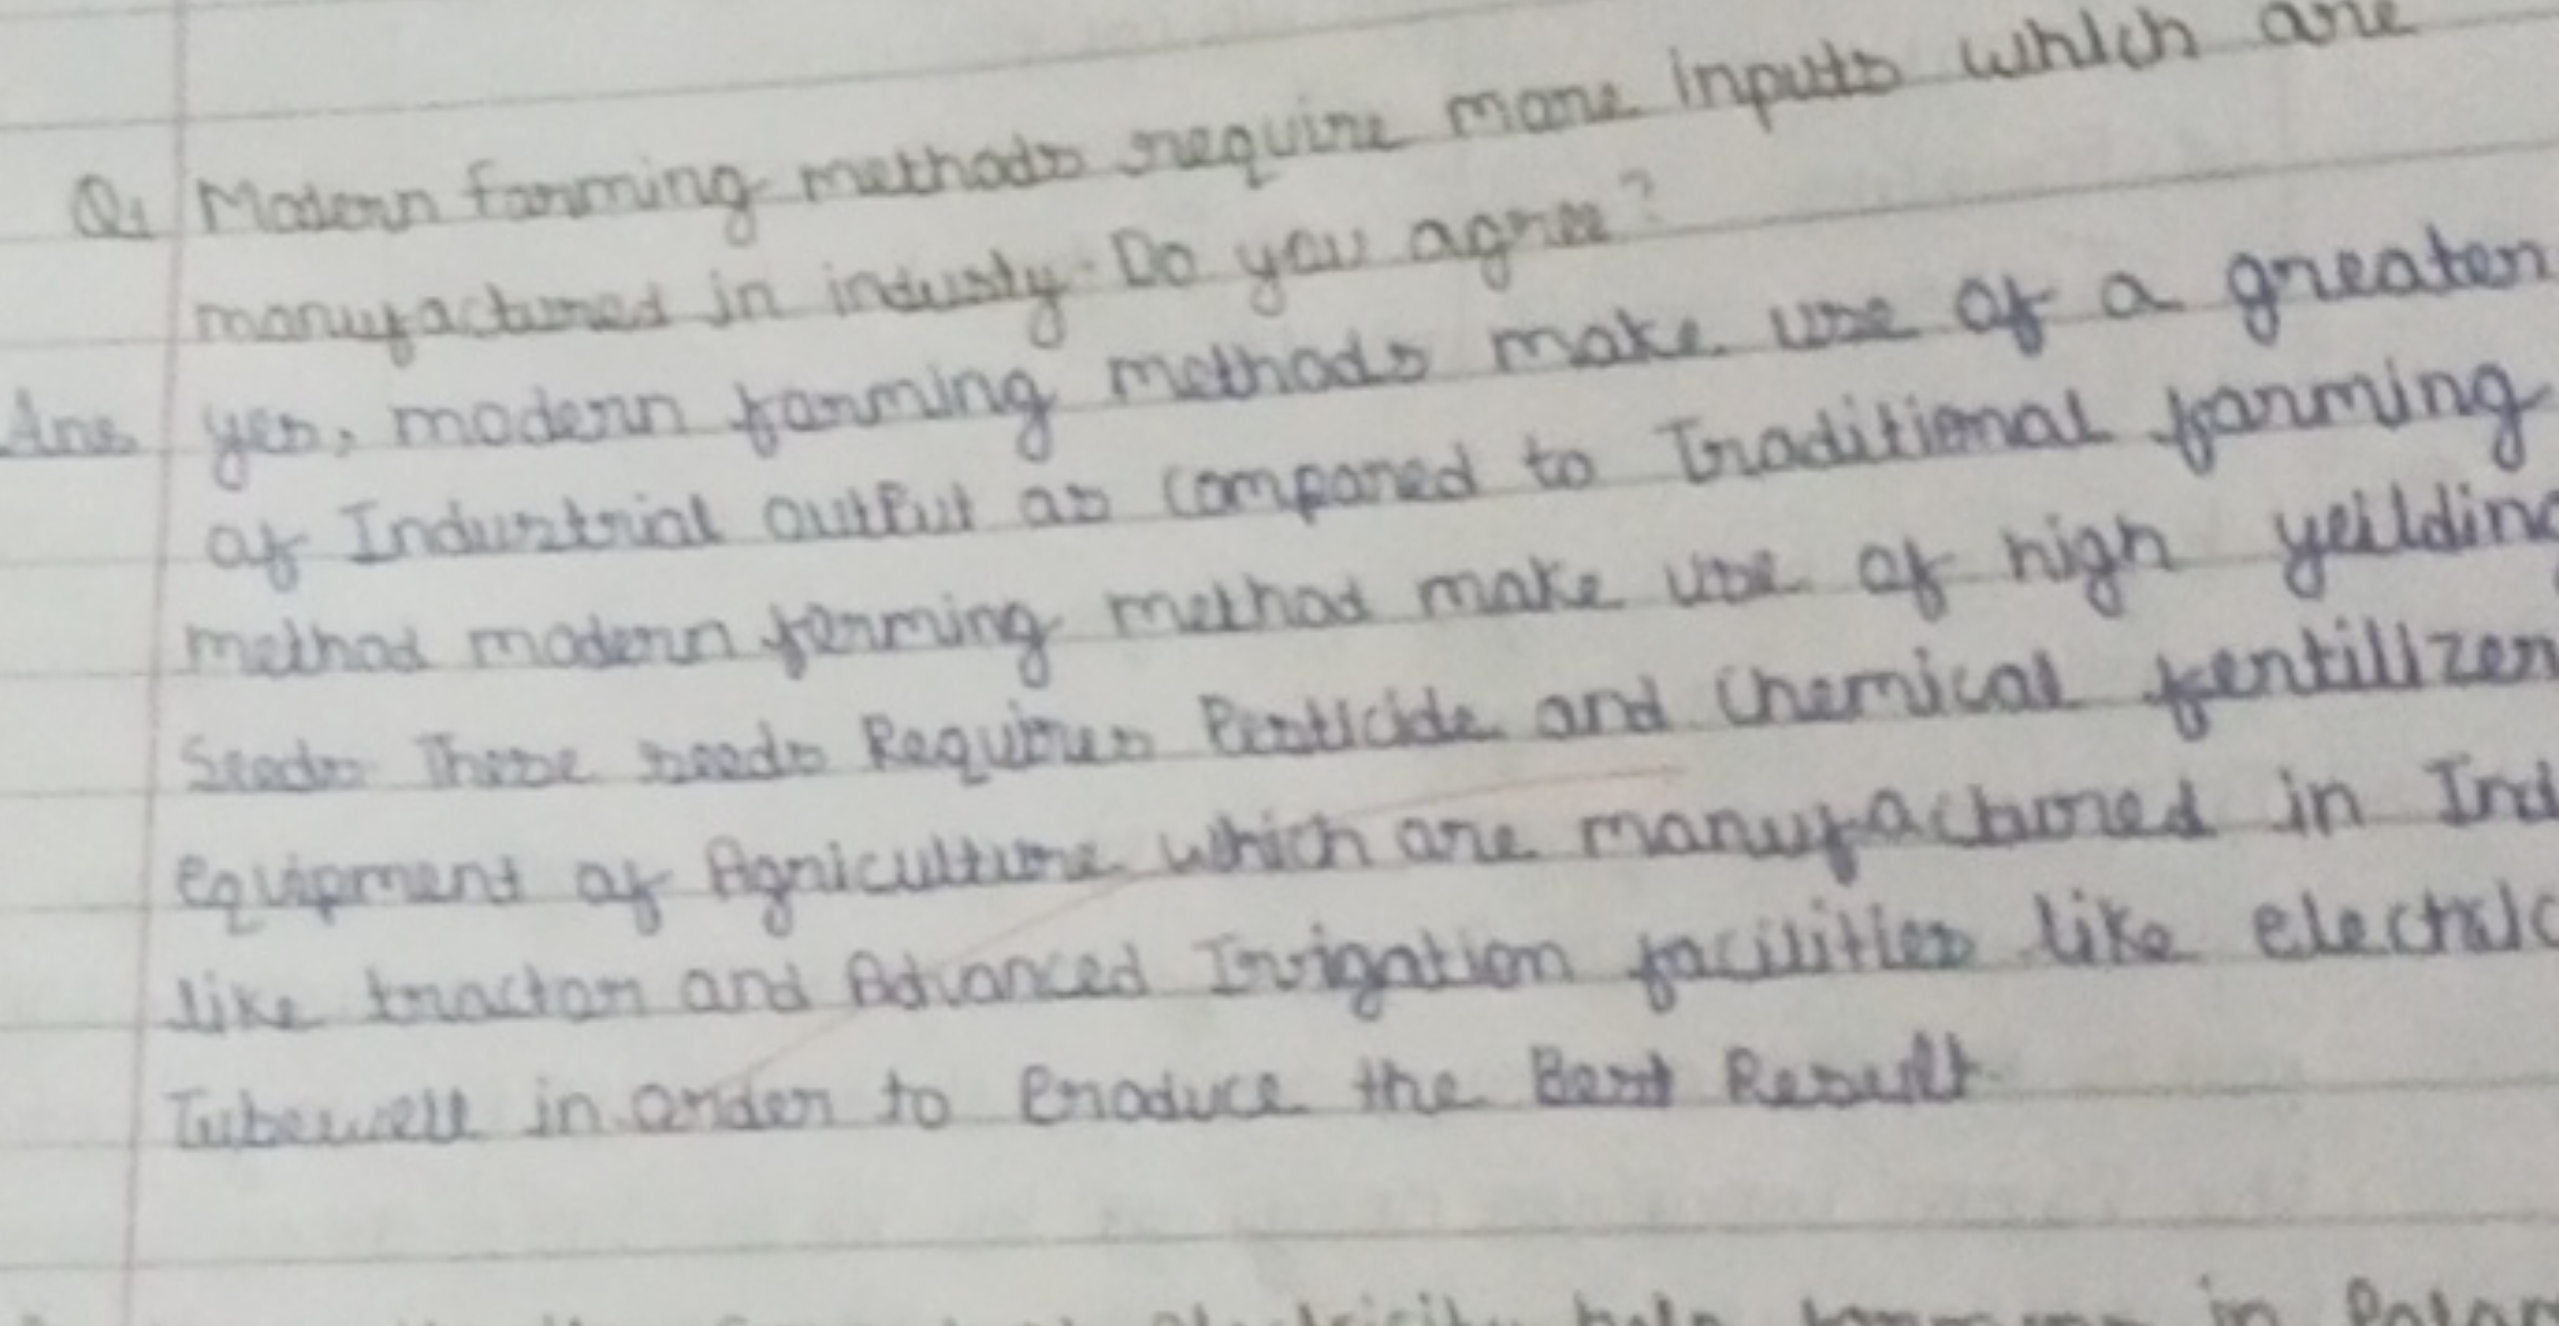 Q1 Modern farming methods require more inputs which are
manufactured in industy. Do you agree?
Ans yes, modern farming methods make use of a greater
of Industrial output as compared to Traditional farming
method modern ferming method make use of high yeilding
Seeds These seeds Requires Pesticide and Chemical fertilizer
equipment of Agriculture which are manufactured in Ind
like tractor and Advanced Irrigation facilities like electric
Tubewell in order to Produce the Best Result
electricity help in Palam